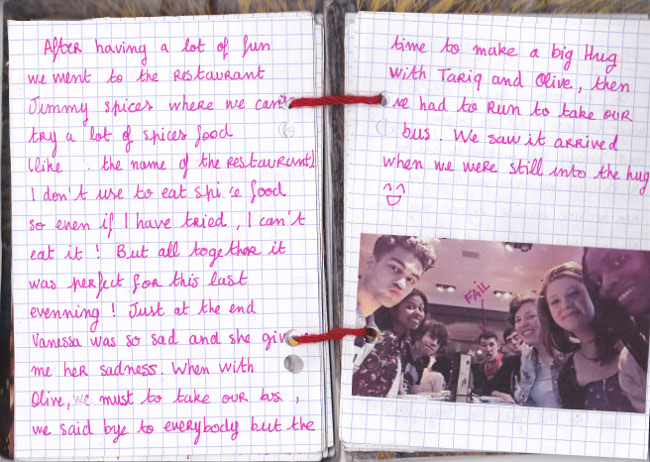 After having a lot of fun
we went to the restaurant
Jimmy spices where we can
try a lot of spices food
(like the name of the restaurant)
I don't use to eat spice food
so even if I have tried, I can't
eat it ! But all together it
was perfect for this last
evenning ! Just at the end
Vanessa was so sad and she give
me her sadness. When with
Olive, we must to take our bus,
we said bye to everybody but the
time to make a big Hug
with Tariq and Olive, then
we had to run to take our
bus. We saw it arrived
when we were still into the hug
FAIL